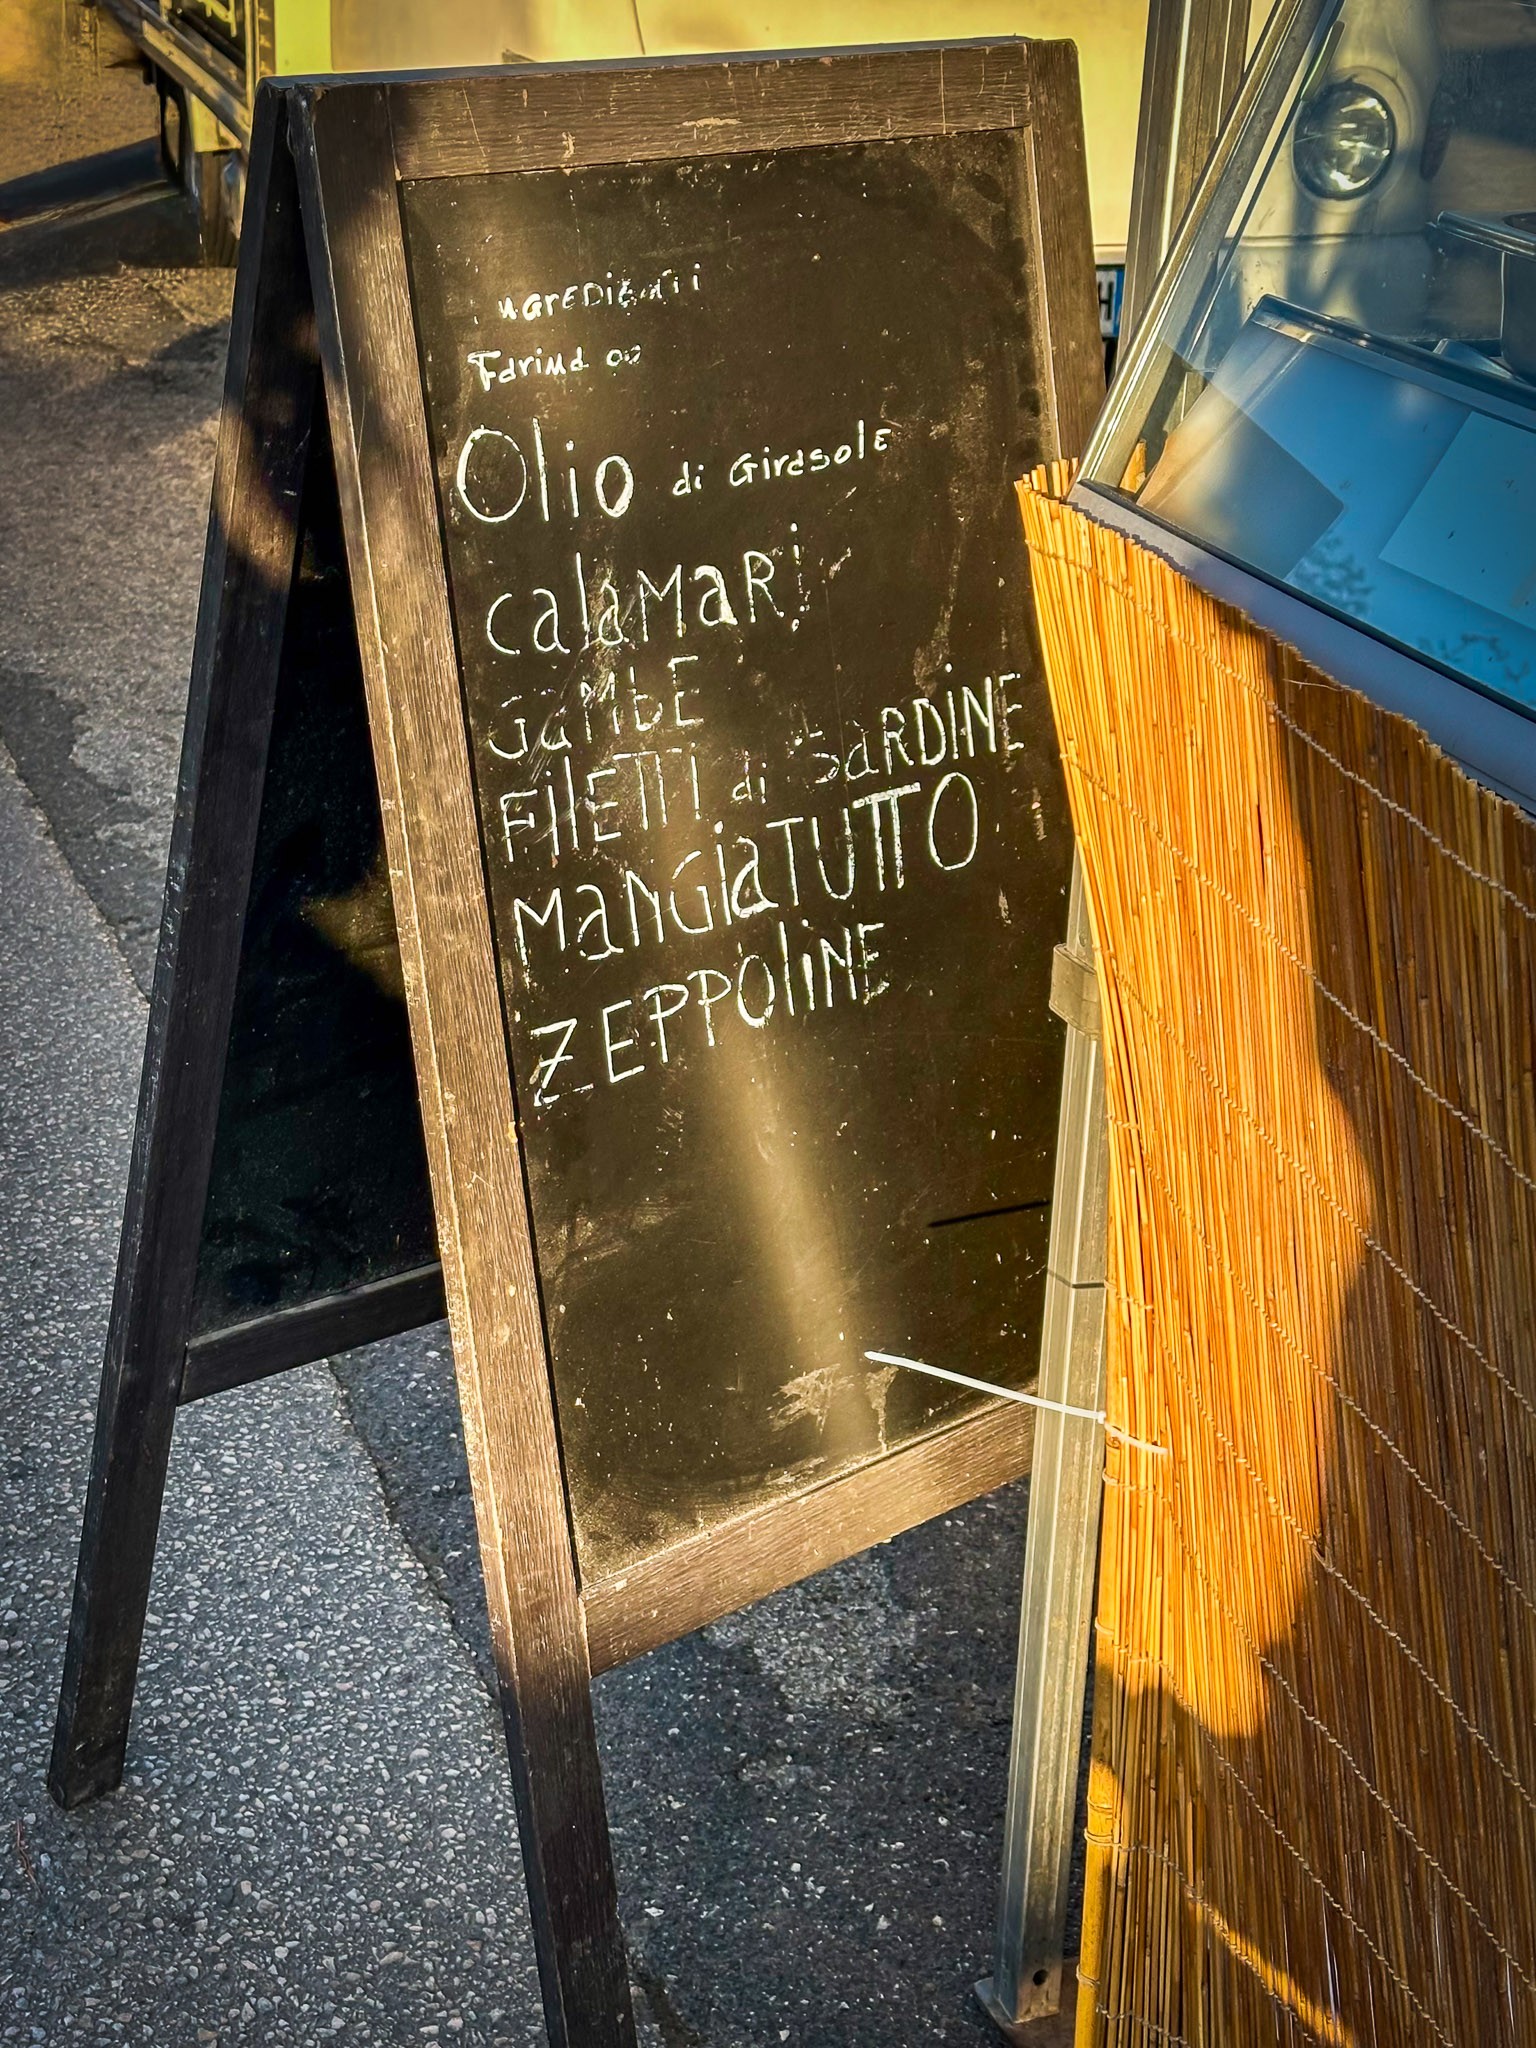 ingredienti
Farina 00
Olio di Girasole
calaMaRi
GaMbE
FilETTI di SaRDINE
MaNGiaTUTTO
ZEPPOliNE